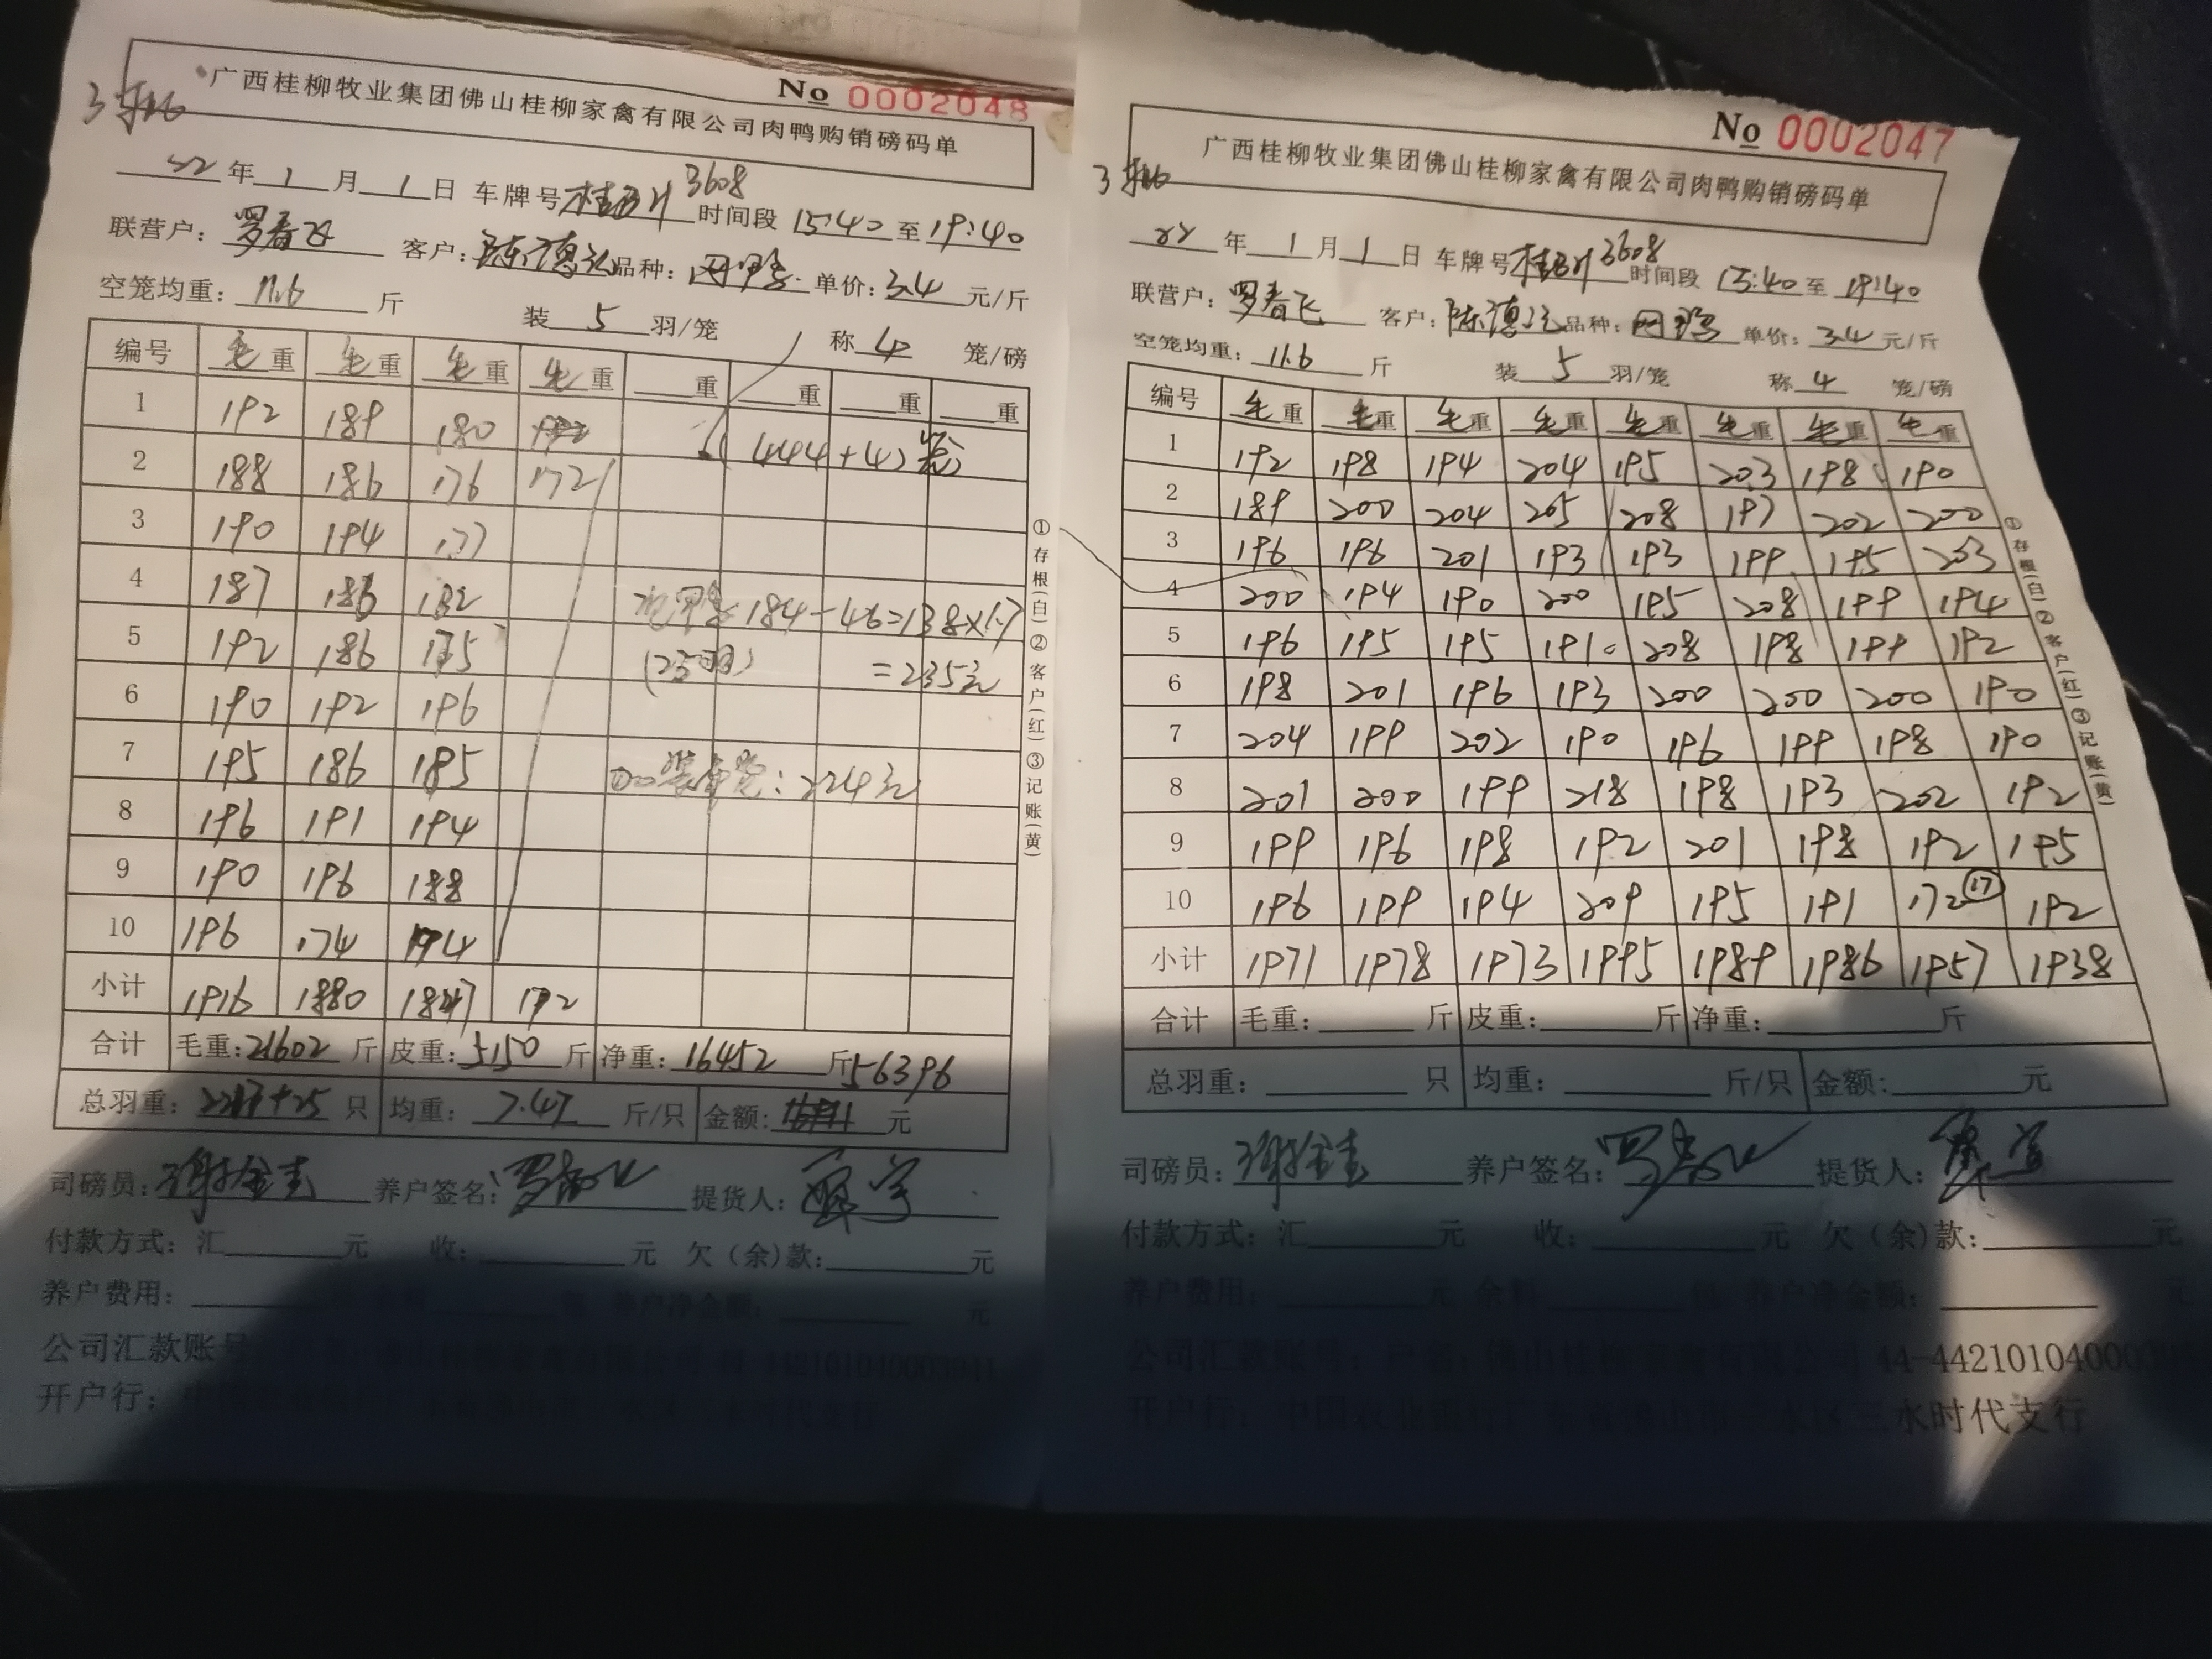 No 0002048
广西桂柳牧业集团佛山桂柳家禽有限公司肉鸭购销磅码单
22 年 1 月 1 日 车牌号 3608 时间段 15:40 至 19:40
联营户： 罗春飞 客户： 品种： 单价：3.4 元/斤
空笼均重： 11.6 斤 装 5 羽/笼 称 4 笼/磅
编号 毛重 毛重 毛重 毛重 重 重 重 重
1 192 189 180
2 188 186 176 172
3 190 194 177
4 187 186 182
5 192 186 175
6 190 192 196
7 195 186 185
8 196 191 194
9 190 196 188
10 196 174 194
小计 1916 1880 1847 172
184-46=138×1.7
=235元
：224元
合计 毛重：21602 斤 皮重：5150 斤 净重：16452 斤 56396
总羽重： 只 均重： 7.47 斤/只 金额： 元
司磅员： 养户签名： 提货人：
付款方式：汇 元 收： 元 欠（余）款： 元
养户费用： 养户净金额： 元
公司汇款账号
开户行：
①存根(白)②客户(红)③记账(黄)
No 0002047
广西桂柳牧业集团佛山桂柳家禽有限公司肉鸭购销磅码单
22 年 1 月 1 日 车牌号 3608 时间段 15:40 至 19:40
联营户： 罗春飞 客户： 品种： 单价：3.4 元/斤
空笼均重： 11.6 斤 装 5 羽/笼 称 4 笼/磅
编号 毛重 毛重 毛重 毛重 毛重 毛重 毛重 毛重
1 192 198 194 204 195 203 198 190
2 189 200 204 205 208 197 202 200
3 196 196 201 193 193 199 195 203
4 200 194 190 200 195 208 199 194
5 196 195 195 191 208 198 199 192
6 198 201 196 193 200 200 200 190
7 204 199 202 190 196 199 198 190
8 201 200 199 218 198 193 202 192
9 199 196 198 192 201 198 192 195
10 196 199 194 209 195 191 172 ⑰ 192
小计 1971 1978 1973 1995 1989 1986 1957 1938
合计 毛重： 斤 皮重： 斤 净重： 斤
总羽重： 只 均重： 斤/只 金额： 元
司磅员： 养户签名： 提货人：
付款方式：汇 元 收： 元 欠（余）款： 元
养户费用： 元 余料 养户净金额： 元
公司汇款账号：
开户行： 水时代支行
①存根(白)②客户(红)③记账(黄)